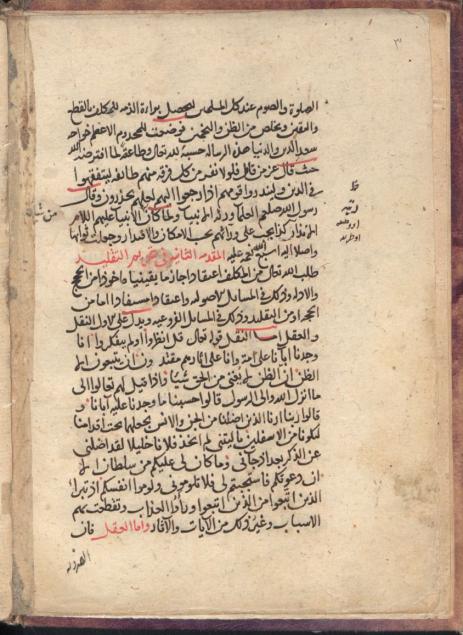 ٣
الصلوة والصوم عند كل المسلمين ليحصل براءة الذمة للمكلف بالقطع
واليقين ويخلص من الظن والتخمين فوضعت للمخدوم الاعظم خواجه
سعد الدين والدنيا هذه الرسالة حسبة لله تعالى وطاعة لما افترضه الله
حيث قال عز من قائل فلولا نفر من كل فرقة منهم طائفة ليتفقهوا
في الدين ولينذروا قومهم اذا رجعوا اليهم لعلهم يحذرون وقال
رسول الله صلعم العلماء ورثة الانبياء وكما كان الانبياء عليهم اللازم
الانذار كذا يجب على وراثهم بحسب الامكان والاقتدار
المقدمة الثانية في تحريم التقليد
طلب الله تعالى من المكلف اعتقادا جازما يقينيا مأخوذا من الحجج
والادلة وذلك في المسائل الاصولية واعتقادا مستفادا اما من
الحجة او من التقليد وذلك في المسائل الفروعية ويدل على الاول النقل
والعقل اما النقل قوله تعالى قل انظروا اولم يتفكروا انا
وجدنا آباءنا على امة وانا على آثارهم مقتدون ان يتبعون الا
الظن ان الظن لا يغني من الحق شيئا واذا قيل لهم تعالوا الى
ما انزل الله والى الرسول قالوا حسبنا ما وجدنا عليه آباءنا و
قالوا ربنا ارنا الذين اضلانا من الجن والانس نجعلهما تحت اقدامنا
ليكونا من الاسفلين يا ليتني لم اتخذ فلانا خليلا لقد اضلني
عن الذكر بعد اذ جاءني وما كان لي عليكم من سلطان الا
ان دعوتكم فاستجبتم لي فلا تلوموني ولوموا انفسكم اذ تبرأ
الذين اتبعوا من الذين اتبعوا ورأوا العذاب وتقطعت بهم
الاسباب وغير ذلك من الآيات والآثار واما العقل فان